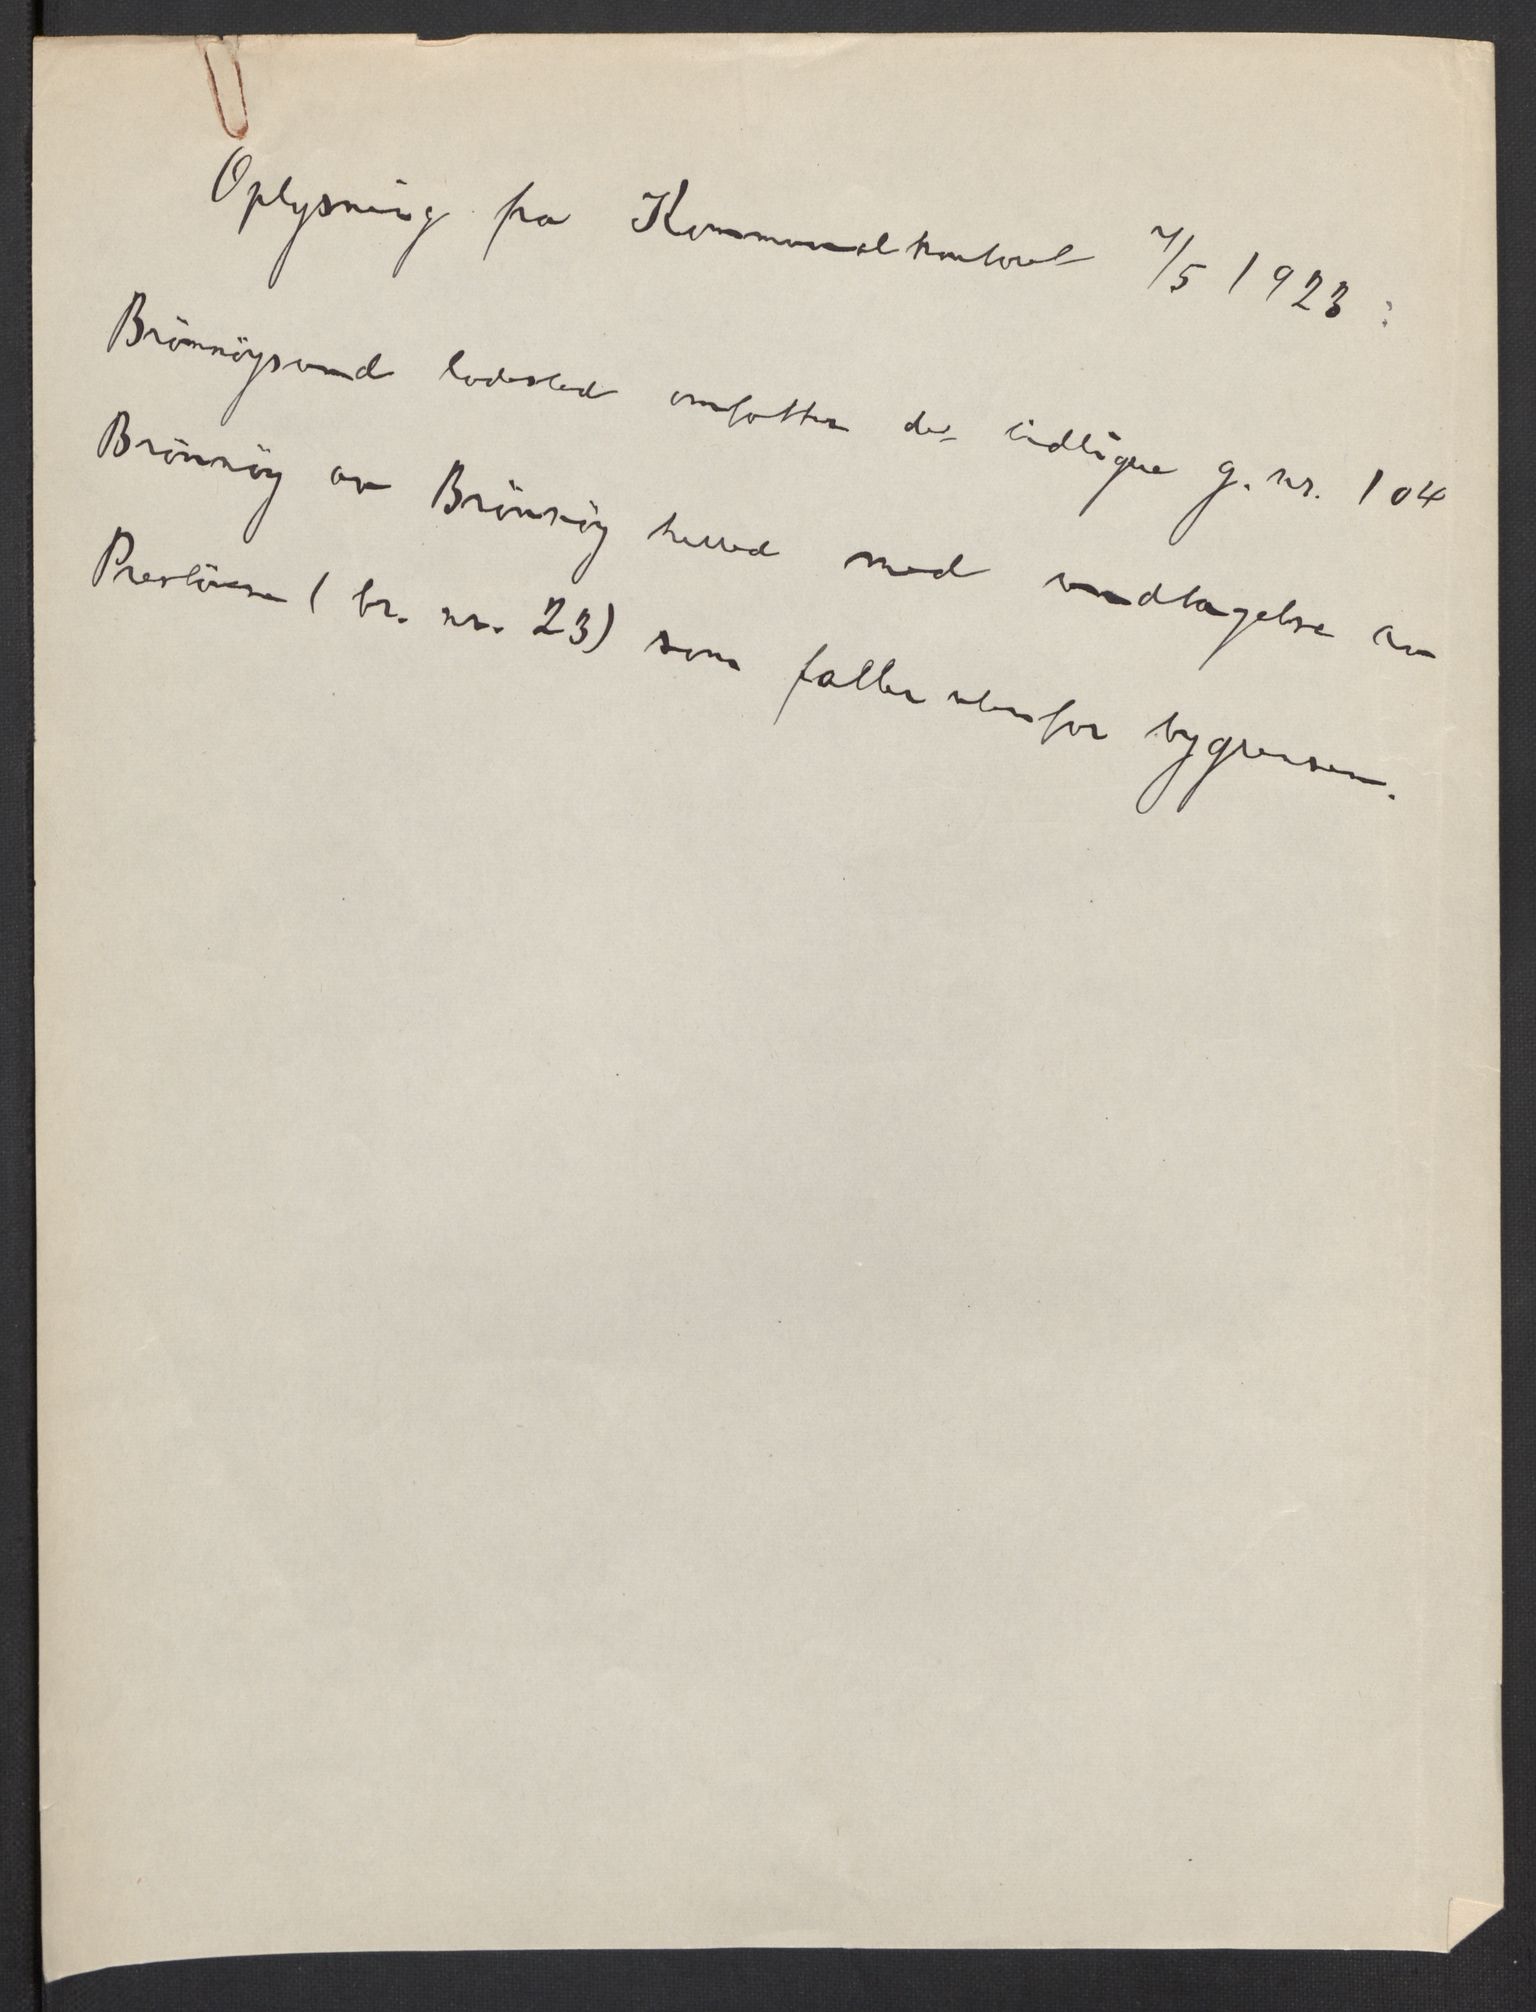 Oplysning fra Kommunalkontoret 7/5 1923:
Brönnöysund ladested omfatter det tidligere g. nr. 104
Brönnöy av Brönnöy herred med undtagelse av
Prestöen (br. nr. 23) som faller utenfor bygrensen.